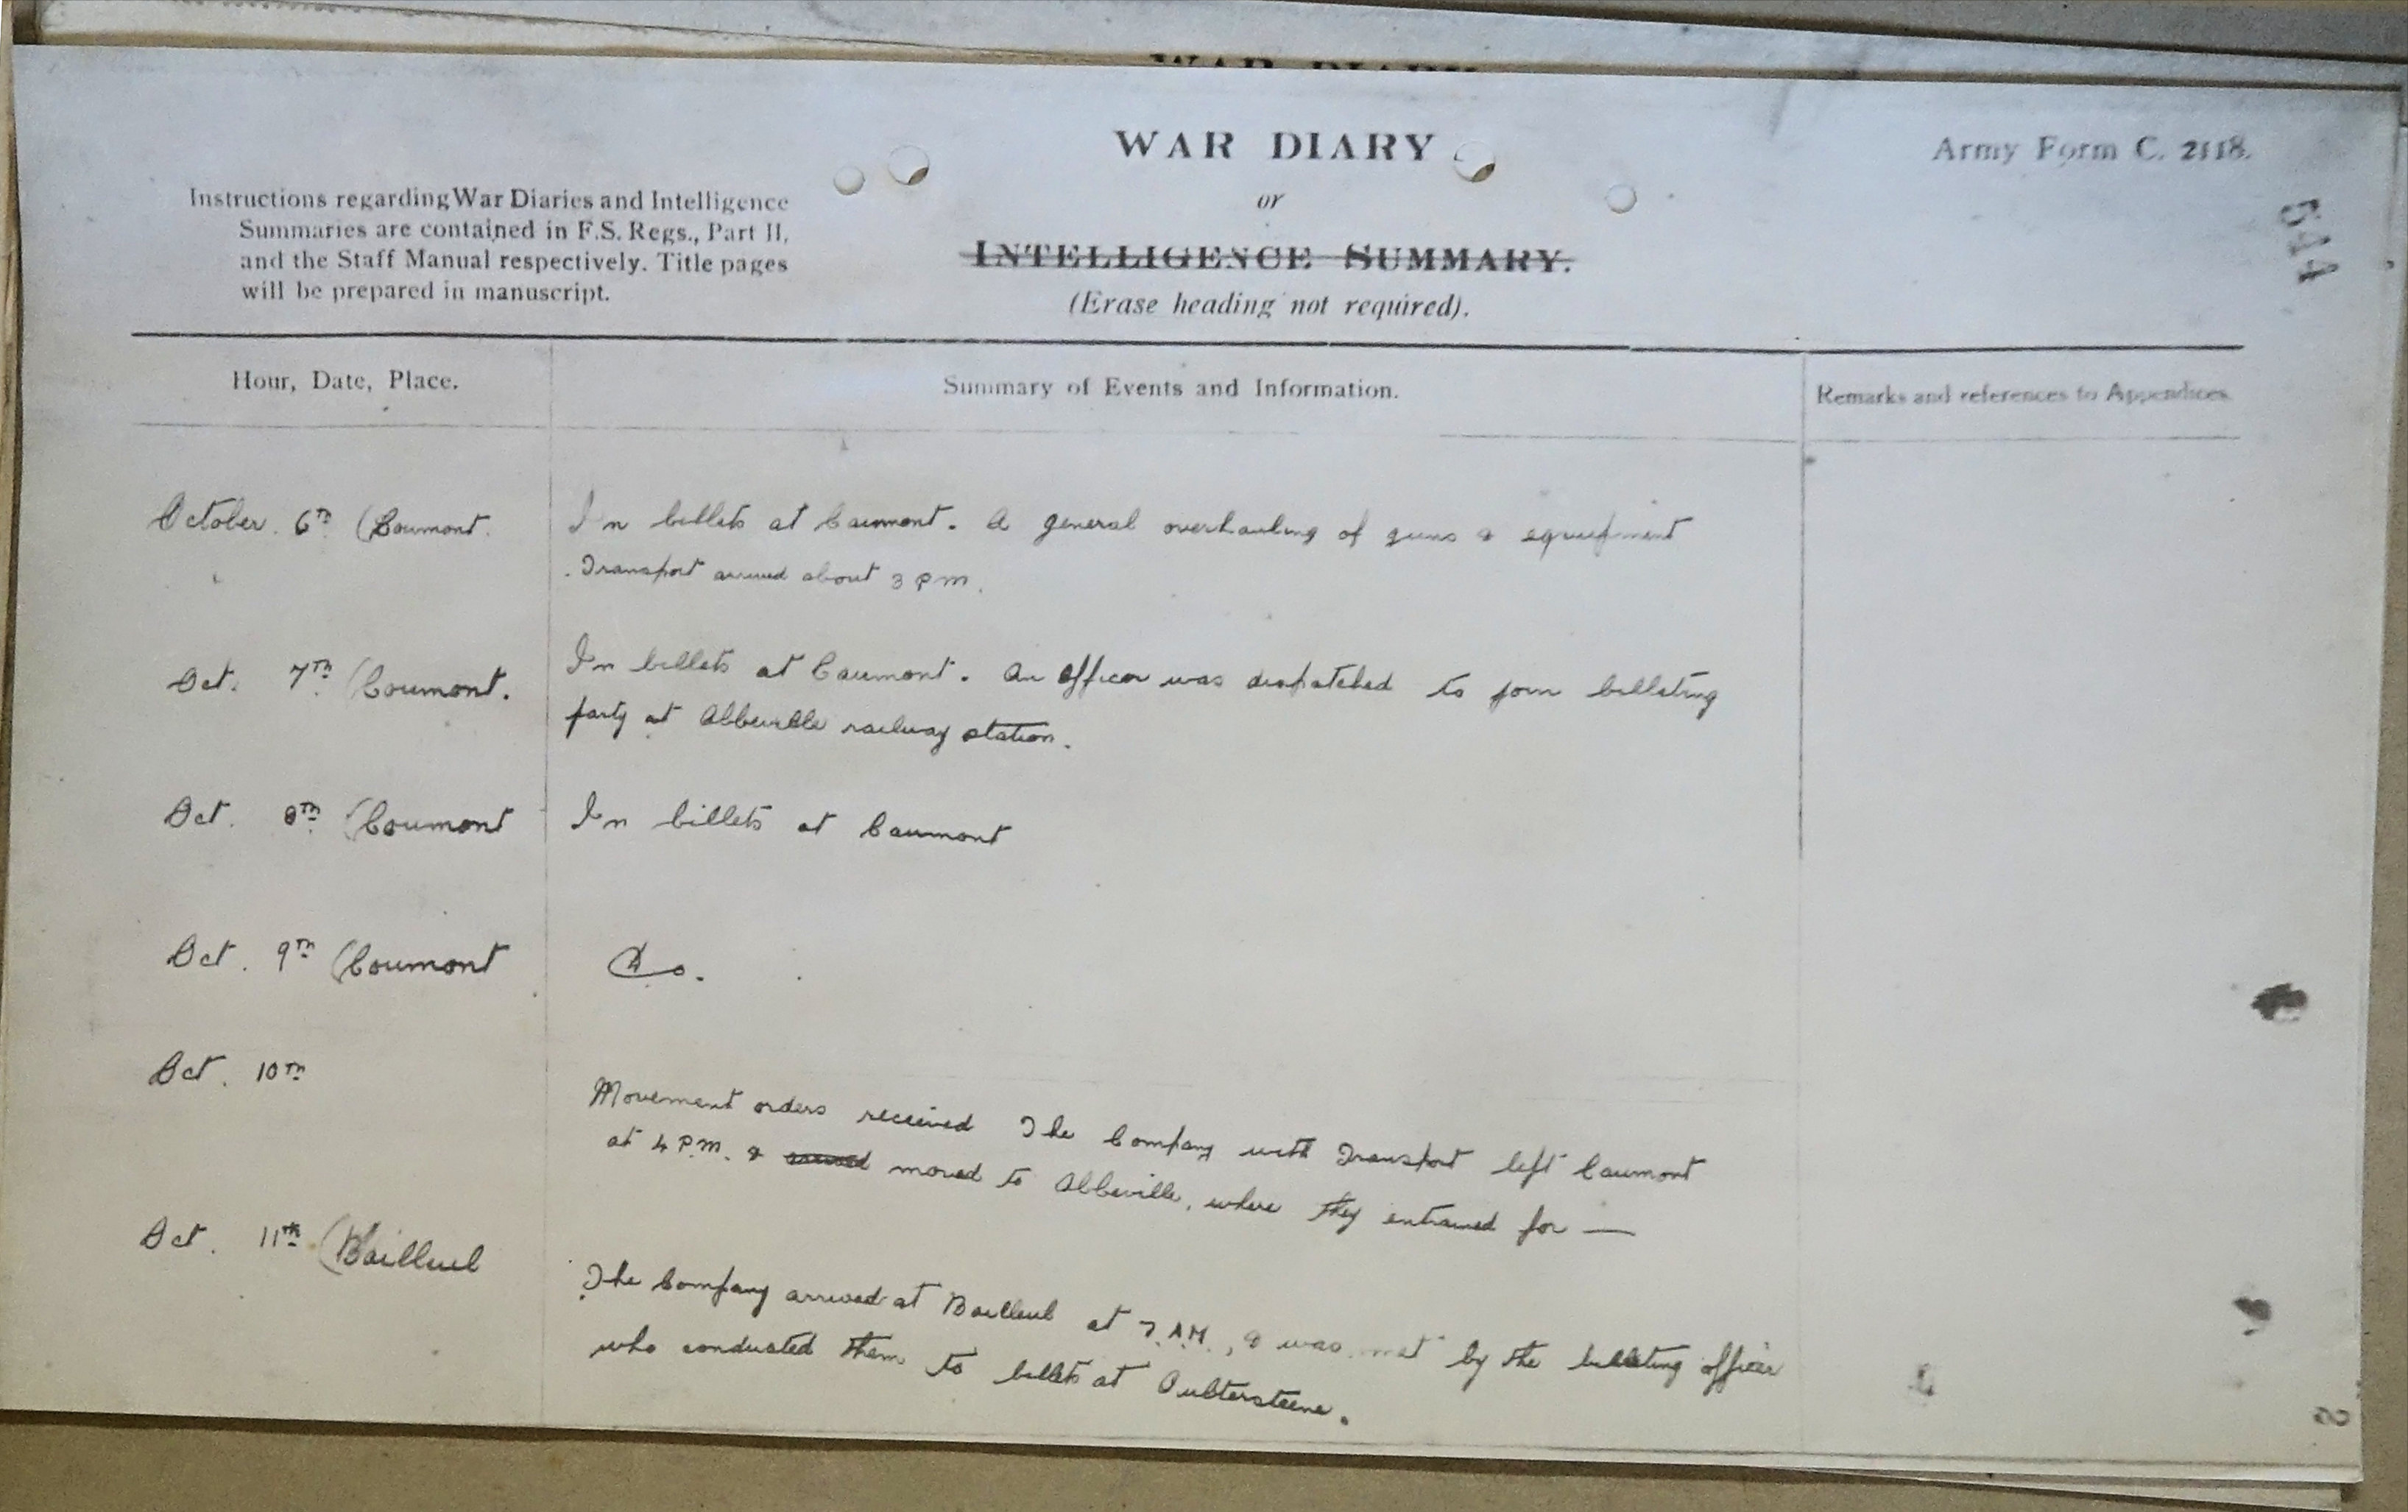 WAR DIARY
WAR DIARY
or
INTELLIGENCE SUMMARY.
(Erase heading not required).
Army Form C. 2118.
544
Instructions regarding War Diaries and Intelligence
Summaries are contained in F.S. Regs., Part II,
and the Staff Manual respectively. Title pages
will be prepared in manuscript.
Hour, Date, Place.
Summary of Events and Information.
Remarks and references to Appendices.
October. 6th (Coumont.
In billets at Caumont. A general overhauling of guns & equipment
Transport arrived about 3 P.m.
Oct. 7th (Coumont.
In billets at Caumont. An officer was dispatched to join billeting
party at Abbeville railway station.
Oct. 8th (Coumont
In billets at Caumont
Oct. 9th (Coumont
Do.
Oct. 10th
Movement orders received The Company with Transport left Caumont
at 4 P.M. & arrived moved to Abbeville, where they entrained for —
Oct. 11th (Bailleul
The Company arrived at Bailleul at 7.A.M., & was met by the billeting officer
who conducted them to billets at Oultersteene.